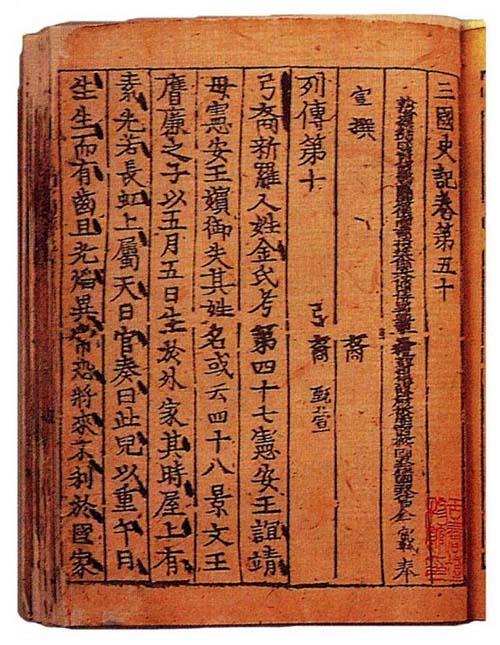 三國史記卷第五十
奉
宣撰
列傳第十 弓裔 甄萱
弓裔新羅人姓金氏考第四十七憲安王誼靖
母憲安王嬪御失其姓名或云四十八景文王
膺廉之子以五月五日生於外家其時屋上有
素光若長虹上屬天日官奏曰此兒以重午日
生生而有齒且光焰異常恐將來不利於國家